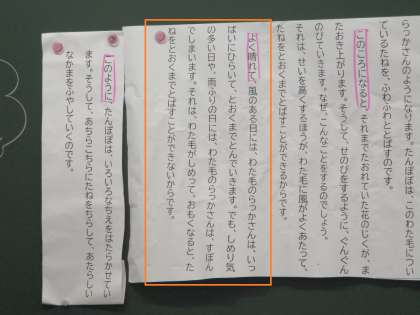 らっかさんのようになります。たんぽぽは、このわた毛につい
ているたねを、ふわふわととばすのです。
このころになると、それまでたおれていた花のじくが、ま
たおき上がります。そうして、せのびをするように、ぐんぐん
のびていきます。なぜ、こんなことをするのでしょう。
それは、せいを高くするほうが、わた毛に風がよくあたって、
たねをとおくまでとばすことができるからです。
よく晴れて、風のある日には、わた毛のらっかさんは、いっ
ぱいにひらいて、とおくまでとんでいきます。でも、しめり気
の多い日や、雨ふりの日には、わた毛のらっかさんは、すぼん
でしまいます。それは、わた毛がしめって、おもくなると、た
ねをとおくまでとばすことができないからです。
このように、たんぽぽは、いろいろなちえをはたらかせてい
ます。そうして、あちらこちらにたねをちらして、あたらしい
なかまをふやしていくのです。